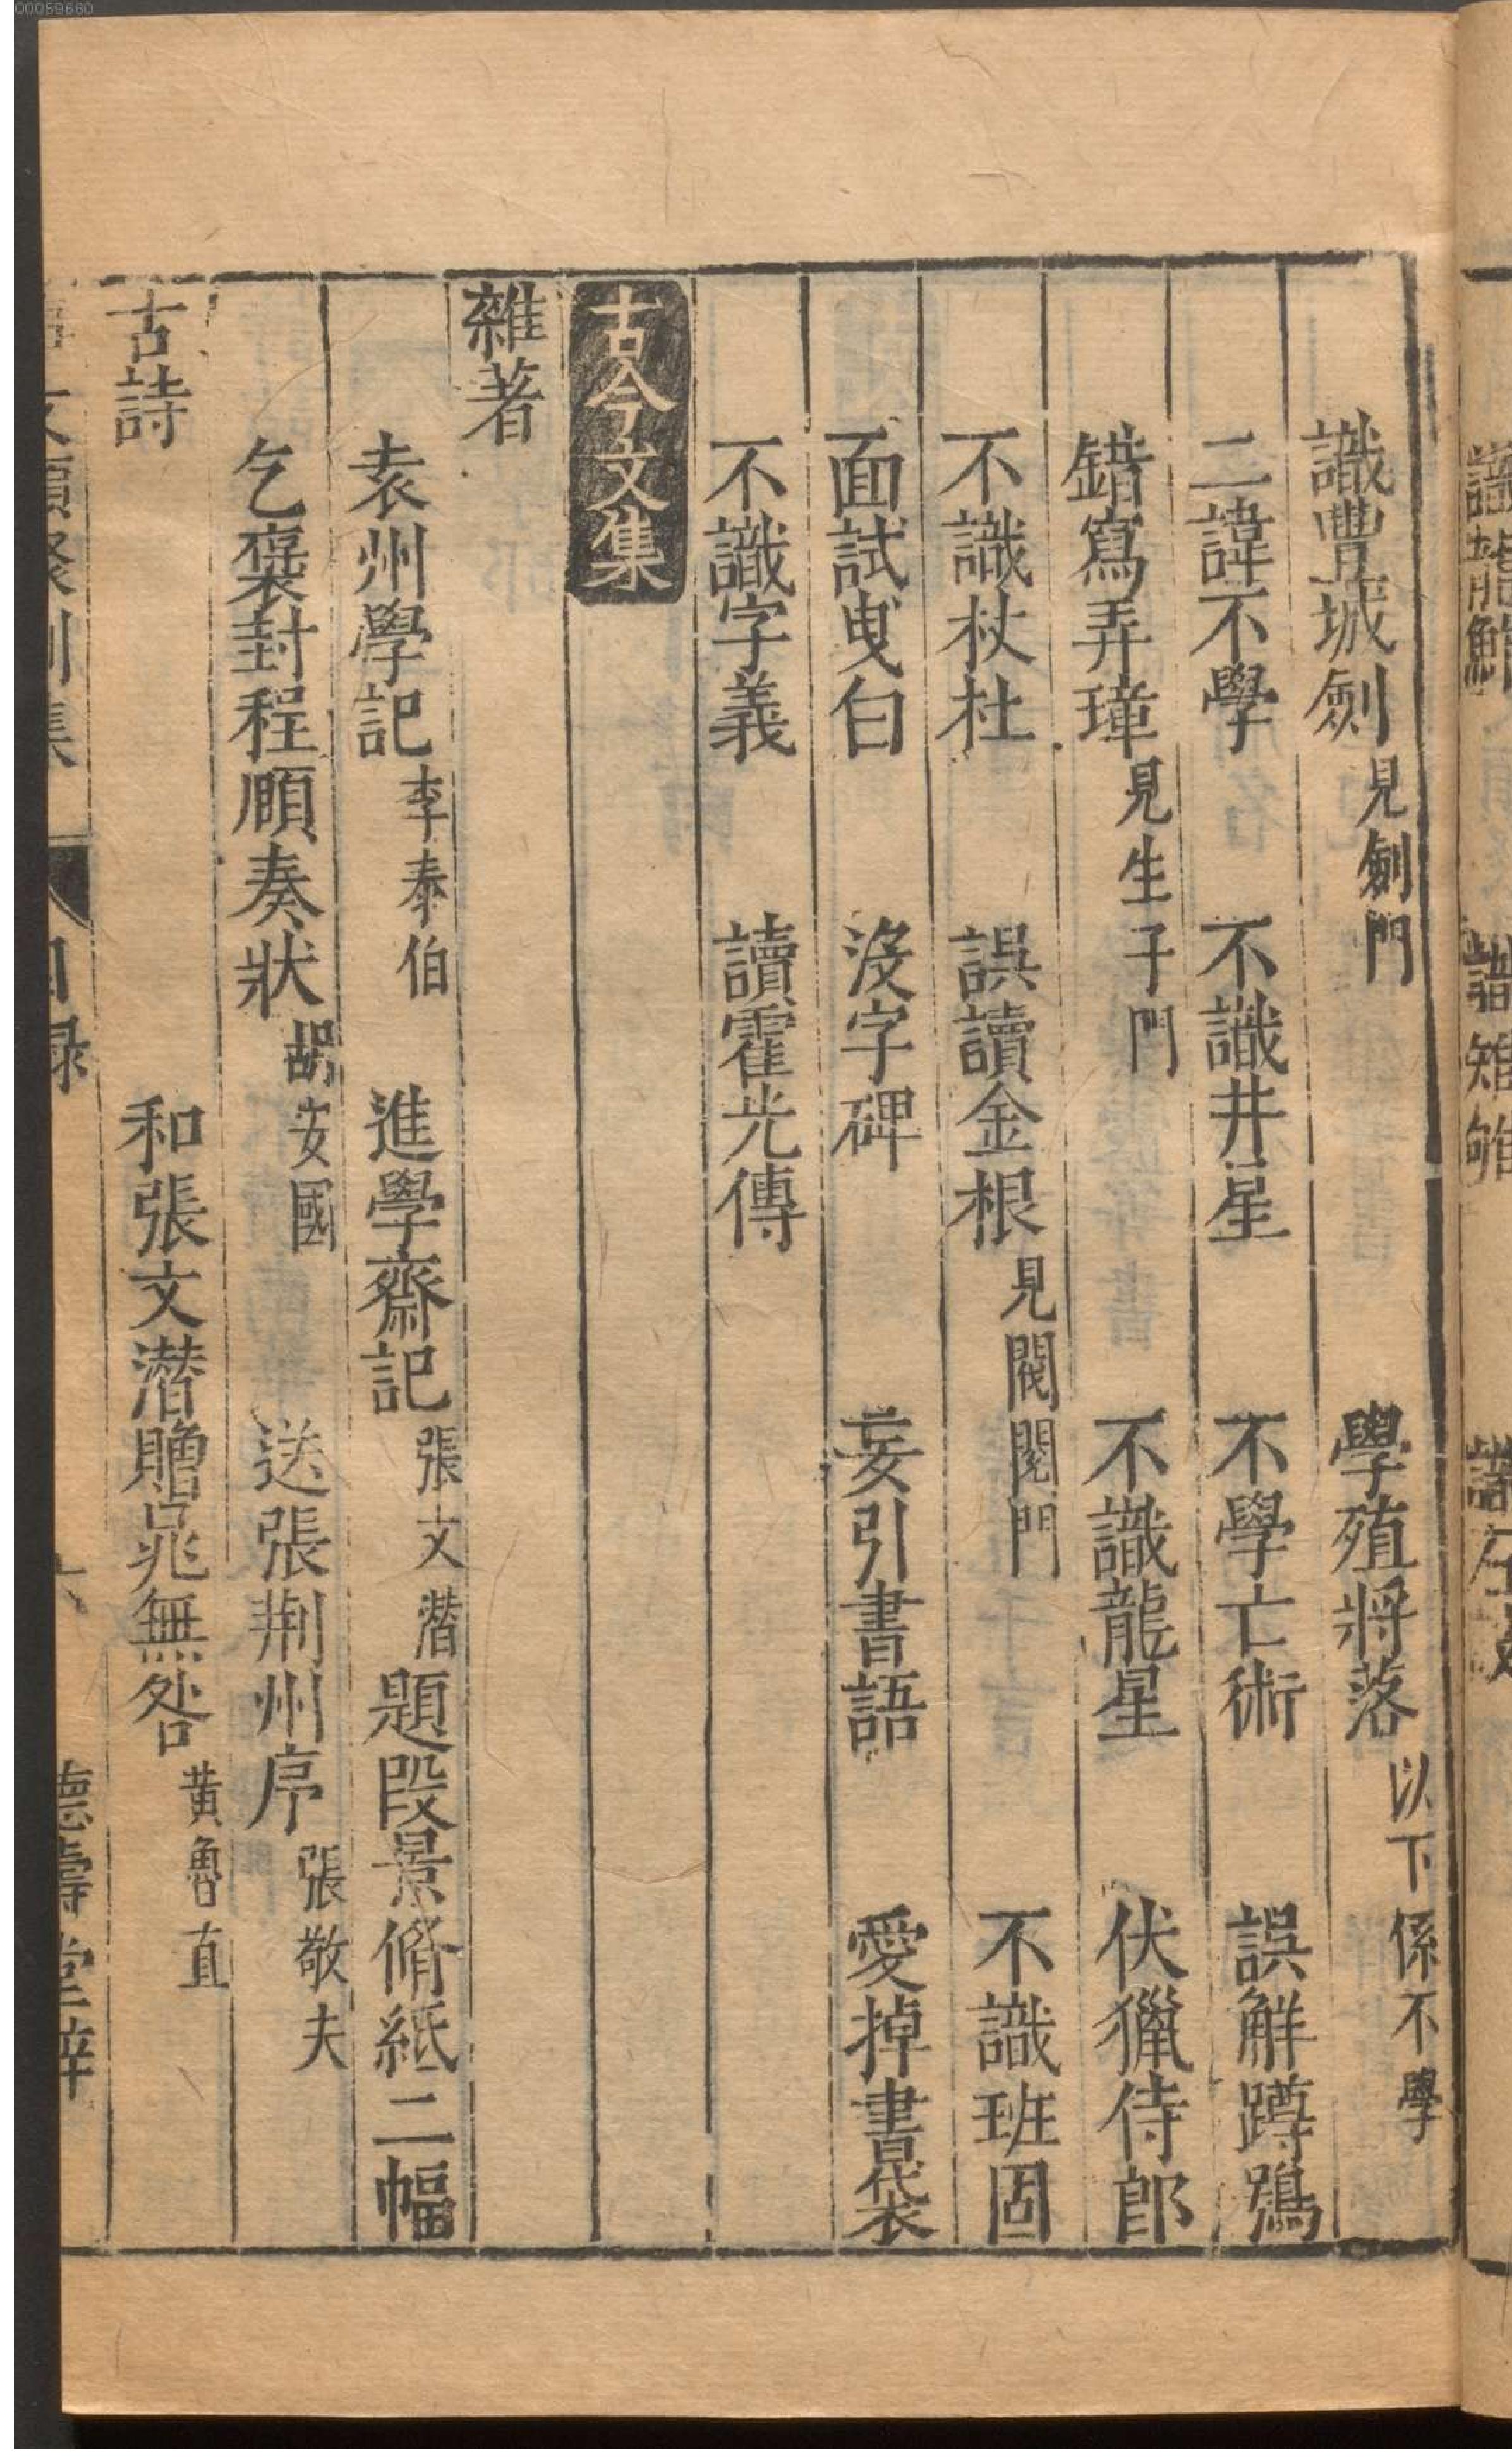 識豐城劍見劍門 學殖將落以下係不學
二諱不學 不識井星 不學亡術 誤解蹲鴟
錯寫弄璋見生子門 不識龍星 伏獵侍郎
不識杖杜 誤讀金根見閥閱門 不識班固
面試曳白 沒字碑 妄引書語 愛掉書袋
不識字義 讀霍光傳
古今文集
雜著
袁州學記李泰伯 進學齋記張文潛 題段景脩紙二幅
乞褒封程頤奏狀胡安國 送張荆州序張敬夫
古詩 和張文潛贈晁無咎黃魯直
目錄 六 德壽堂梓
00059660